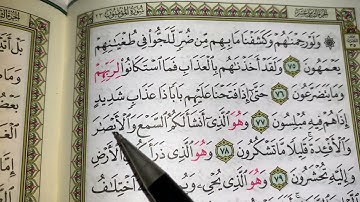 سورة المؤمنون
وَلَوْ رَحِمْنَٰهُمْ وَكَشَفْنَا مَا بِهِم مِّن ضُرٍّ لَّلَجُّوا۟ فِى طُغْيَٰنِهِمْ
يَعْمَهُونَ ٧٥ وَلَقَدْ أَخَذْنَٰهُم بِٱلْعَذَابِ فَمَا ٱسْتَكَانُوا۟ لِرَبِّهِمْ
وَمَا يَتَضَرَّعُونَ ٧٦ حَتَّىٰٓ إِذَا فَتَحْنَا عَلَيْهِم بَابًا ذَا عَذَابٍ شَدِيدٍ
إِذَا هُمْ فِيهِ مُبْلِسُونَ ٧٧ وَهُوَ ٱلَّذِىٓ أَنشَأَ لَكُمُ ٱلسَّمْعَ وَٱلْأَبْصَٰرَ
وَٱلْأَفْـِٔدَةَ قَلِيلًا مَّا تَشْكُرُونَ ٧٨ وَهُوَ ٱلَّذِى ذَرَأَكُمْ فِى ٱلْأَرْضِ
وَإِلَيْهِ تُحْشَرُونَ ٧٩ وَهُوَ ٱلَّذِى يُحْىِۦ وَيُمِيتُ وَلَهُ ٱخْتِلَٰفُ